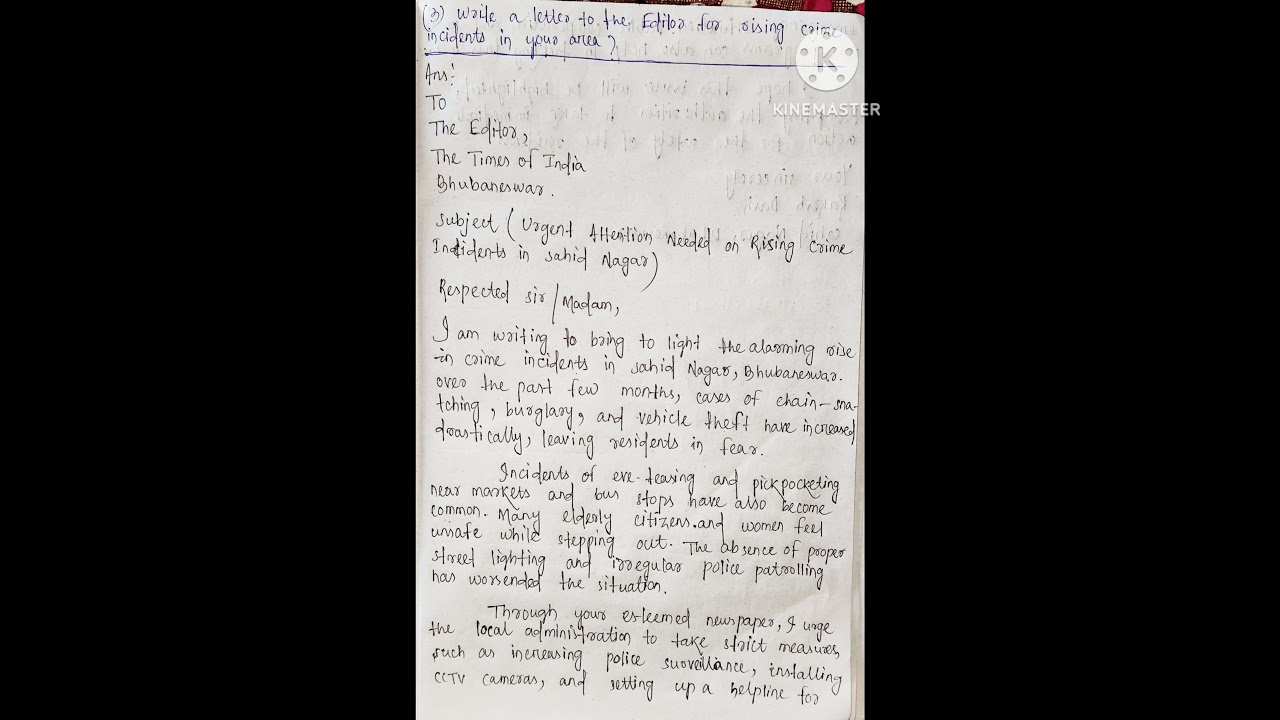 (3) Write a letter to the Editor for rising crime
incidents in your area?
Ans:
To
The Editor,
The Times of India
Bhubaneswar.
Subject (Urgent Attention Needed on Rising Crime
Incidents in Sahid Nagar)
Respected sir/Madam,
I am writing to bring to light the alarming rise
in crime incidents in Sahid Nagar, Bhubaneswar.
over the past few months, cases of chain-sna-
tching, burglary, and vehicle theft have increased
drastically, leaving residents in fear.
Incidents of eve-teasing and pickpocketing
near markets and bus stops have also become
common. Many elderly citizens.and women feel
unsafe while stepping out. The absence of proper
street lighting and irregular police patrolling
has worsended the situation.
Through your esteemed newspaper, I urge
the local administration to take strict measures,
such as increasing police surveillance, installing
CCTV cameras, and setting up a helpline for
KINEMASTER